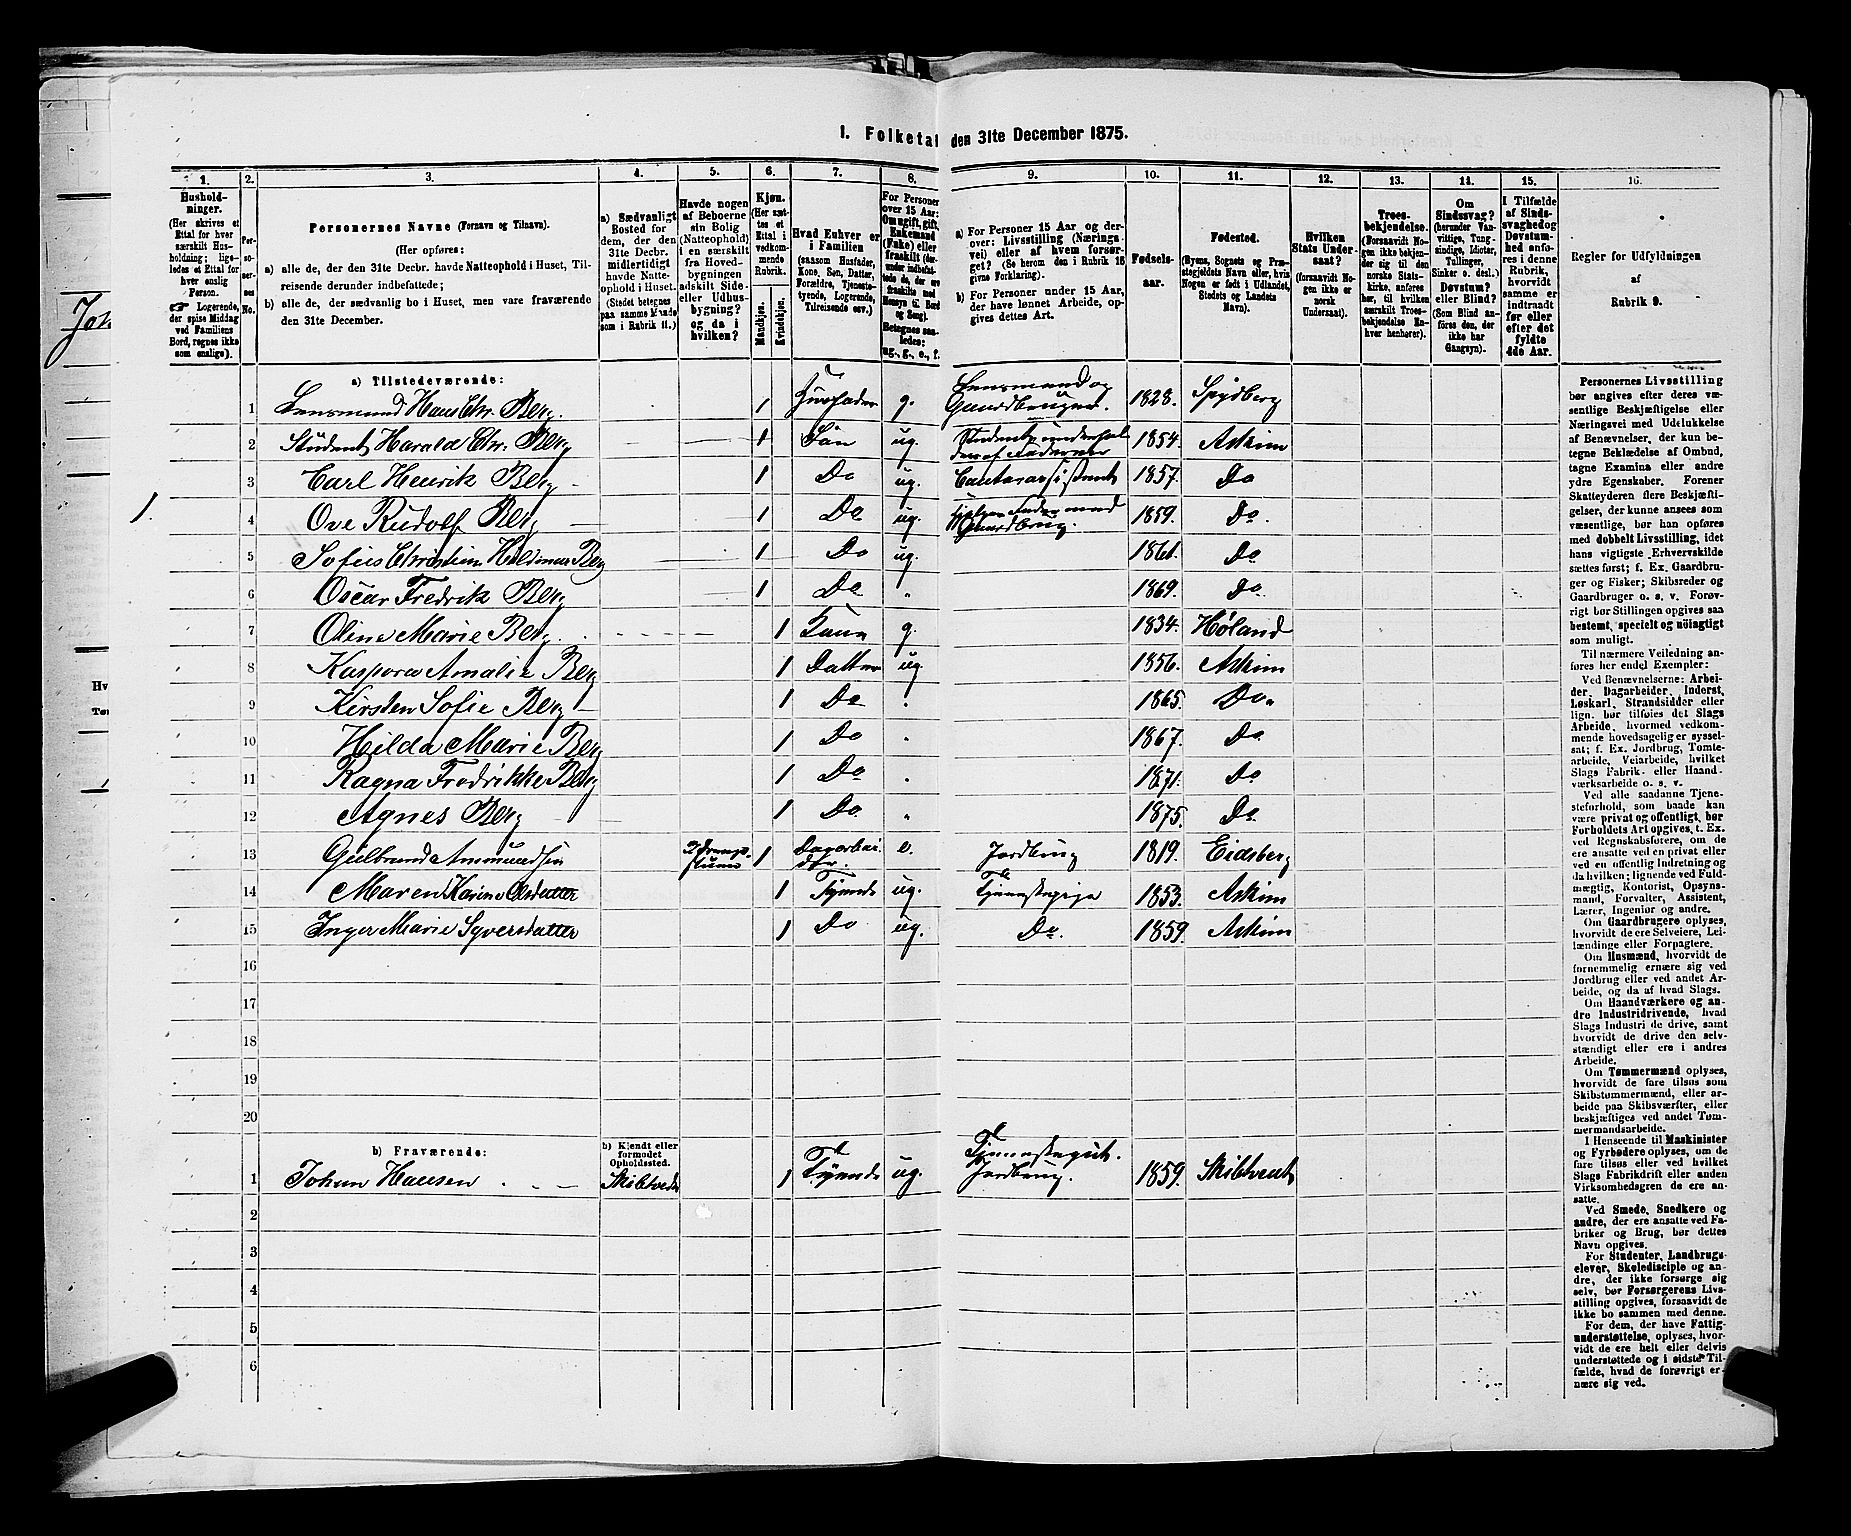 I. Folketal den 31te December 1875.
1. 2. 3. 4. 5. 6. 7. 8. 9. 10. 11. 12. 13. 14. 15. 16.
Hushold-
ninger.
(Her skrives et
Ettal for hver
særskilt Hus-
holdning; lige-
ledes et Ettal for
hver enslig
Person.
☞ Logerende,
der spise Middag
ved Familiens
Bord, regnes ikke
som enslige).
Per-
so-
ner-
nes
No.
Personernes Navne (Fornavn og Tilnavn).
(Her opføres:
a) alle de, der den 31te Decbr. havde Natteophold i Huset, Til-
reisende derunder indbefattede;
b) alle de, der sædvanlig bo i Huset, men vare fraværende
den 31te December.
a) Sædvanligt
Bosted for
dem, der den
31te Decbr.
midlertidigt
havde Natte-
ophold i Huset.
(Stedet betegnes
paa samme Maade
som i Rubrik 11.)
Havde nogen
af Beboerne
sin Bolig
(Natteophold)
i en særskilt
fra Hoved-
bygningen
adskilt Side-
eller Udhus-
bygning?
og da i
hvilken?
Kjøn.
(Her sæt-
tes et
Ettal i
vedkom-
mende
Rubrik.
Mandkjøn.
Kvindekjøn.
Hvad Enhver er
i Familien
(saasom Husfader,
Kone, Søn, Datter,
Forældre, Tjeneste-
tyende, Logerende,
Tilreisende osv.)
For Personer
over 15 Aar:
Om ugift, gift,
Enkemand
(Enke) eller
fraskilt (der-
under indbefat-
tede de, der ere
fraskilte med
Hensyn til Bord
og Seng).
Betegnes saa-
ledes:
ug., g., e., f.
a) For Personer 15 Aar og der-
over: Livsstilling (Nærings-
vei) eller af hvem forsør-
get? (Se herom den i Rubrik 16
givne Forklaring).
b) For Personer under 15 Aar,
der have lønnet Arbeide, op-
gives dettes Art.
Fødsels-
aar.
Fødested.
(Byens, Sognets og Præ-
stegjeldets Navn eller, hvis
Nogen er født i Udlandet,
Stedets og Landets
Navn).
Hvilken
Stats Under-
saat?
(forsaavidt No-
gen ikke er
norsk
Undersaat).
Troes-
bekjendelse.
(Forsaavidt No-
gen ikke bekjen-
der sig til den
norske Stats-
kirke, anføres
her, til hvilken
særskilt Troes-
bekjendelse En-
hver henhører).
Om
Sindssvag?
(herunder Van-
vittige, Tung-
sindige, Idioter,
Tullinger,
Sinker o. desl.)
Døvstum?
eller Blind?
(Som Blind an-
føres den, der
ikke har
Gangsyn).
I Tilfælde
af Sinds-
svaghed og
Døvstum-
hed anfø-
res i denne
Rubrik,
hvorvidt
samme er
indtraadt
før eller
efter det
fyldte
4de Aar.
Regler for Udfyldningen
af
Rubrik 9.
a) Tilstedeværende:
1 Lensmand Hans Chr. Berg. 1 Husfader g. Lensmand og Gaardbruger. 1828. Spydberg
2 Student Harald Chr. Berg 1 Søn ug. Student, underhol- des af Faderen 1854. Askim
3 Carl Henrik Berg 1 Do ug. Contorassistent 1857. Do
1. 4 Ove Rudolf Berg 1 Do ug. hjelper Fader med Gaardbrug. 1859. Do.
5 Sofus Christian Holdmar Berg 1 Do ug. 1861. Do
6 Oscar Fredrik Berg 1 Do " 1869. Do.
7 Oline Marie Berg 1 Kone g. 1834. Høland
8 Kaspora Amalie Berg 1 Datter ug. 1856. Askim
9 Kirsten Sofie Berg 1 Do " 1865. Do.
10 Hilda Marie Berg 1 Do " 1867. Do.
11 Ragna Fredrikke Berg 1 Do " 1871. Do
12 Agnes Berg 1 Do. " 1875. Do.
13 Gulbrand Ammundsen 1 Dagarbei- der. e. Jordbrug 1819. Eidsberg
14 Maren Karine Olsdatter 1 Tyende ug. Tjenestepige 1853. Askim
15 Inger Marie Syversdatter 1 Do ug. Do. 1859. Askim
16
17
18
19
20
b) Fraværende:
b) Kjendt eller
formodet
Opholdssted.
1 Johan Hansen Skibtvedt 1 Tyende ug. Tjenestegut. Jordbrug. 1859. Skibtvedt
2
3
4
5
6
Personernes Livsstilling
bør angives efter deres væ-
sentlige Beskjæftigelse eller
Næringsvei med Udelukkelse
af Benævnelser, der kun be-
tegne Beklædelse af Ombud,
tagne Examina eller andre
ydre Egenskaber. Forener
Skatteyderen flere Beskjæfti-
gelser, der kunne ansees som
væsentlige, bør han opføres
med dobbelt Livsstilling, idet
hans vigtigste Erhvervskilde
sættes først; f. Ex. Gaardbru-
ger og Fisker; Skibsreder og
Gaardbruger o. s. v. Forøv-
rigt bør Stillingen opgives saa
bestemt, specielt og nöiagtigt
som muligt.
Til nærmere Veiledning an-
føres her endel Exempler:
Ved Benævnelserne: Arbei-
der, Dagarbeider, Inderst,
Løskarl, Strandsidder eller
lign. bør tilføies det Slags
Arbeide, hvormed vedkom-
mende hovedsagelig er syssel-
sat; f. Ex. Jordbrug, Tømte-
arbeide, Veiarbeide, hvilket
Slags Fabrik- eller Haand-
værksarbeide o. s. v.
Ved alle saadanne Tjene-
steforhold, som baade kan
være privat og offentligt, bør
Forholdets Art opgives, t. Ex.
ved Regnskabsførere, om de
ere ansatte ved en privat eller
ved en offentlig Indretning og
da hvilken; lignende ved Fuld-
mægtig, Kontorist, Opsyns-
mand, Forvalter, Assistent,
Lærer, Ingeniør og andre.
Om Gaardbrugere oplyses,
hvorvidt de ere Selveiere, Lei-
lændinge eller Forpagtere.
Om Husmænd, hvorvidt de
fornemmelig ernære sig ved
Jordbrug eller ved andet Ar-
beide, og da af hvad Slags.
Om Haandværkere og an-
dre Industridrivende, hvad
Slags Industri de drive, samt
hvorvidt de drive den selv-
stændigt eller ere i andres
Arbeide.
Om Tømmermænd oplyses,
hvorvidt de fare tilsøs som
Skibstømmermænd, eller ar-
beide paa Skibsværfter, eller
beskjæftiges ved andet Tøm-
mermandsarbeide.
I Henseende til Maskinister
og Fyrbødere oplyses, om de
fare tilsøs eller ved hvilket
Slags Fabrikdrift eller anden
Virksomhedsgren de ere an-
satte.
Ved Smede, Snedkere og
andre, der ere ansatte ved Fa-
briker og Brug, bør dettes
Navn opgives.
For Studenter, Landbrugs-
elever, Skoledisciple og an-
dre, der ikke forsørge sig
selv, bør Forsørgerens Livs-
stilling opgives, forsaavidt de
ikke bo sammen med denne.
For dem, der have Fattig-
understøttelse, oplyses, hvor-
vidt de ere helt eller delvis
understøttede og i sidste Til-
fælde, hvad de forøvrigt er-
nære sig ved.